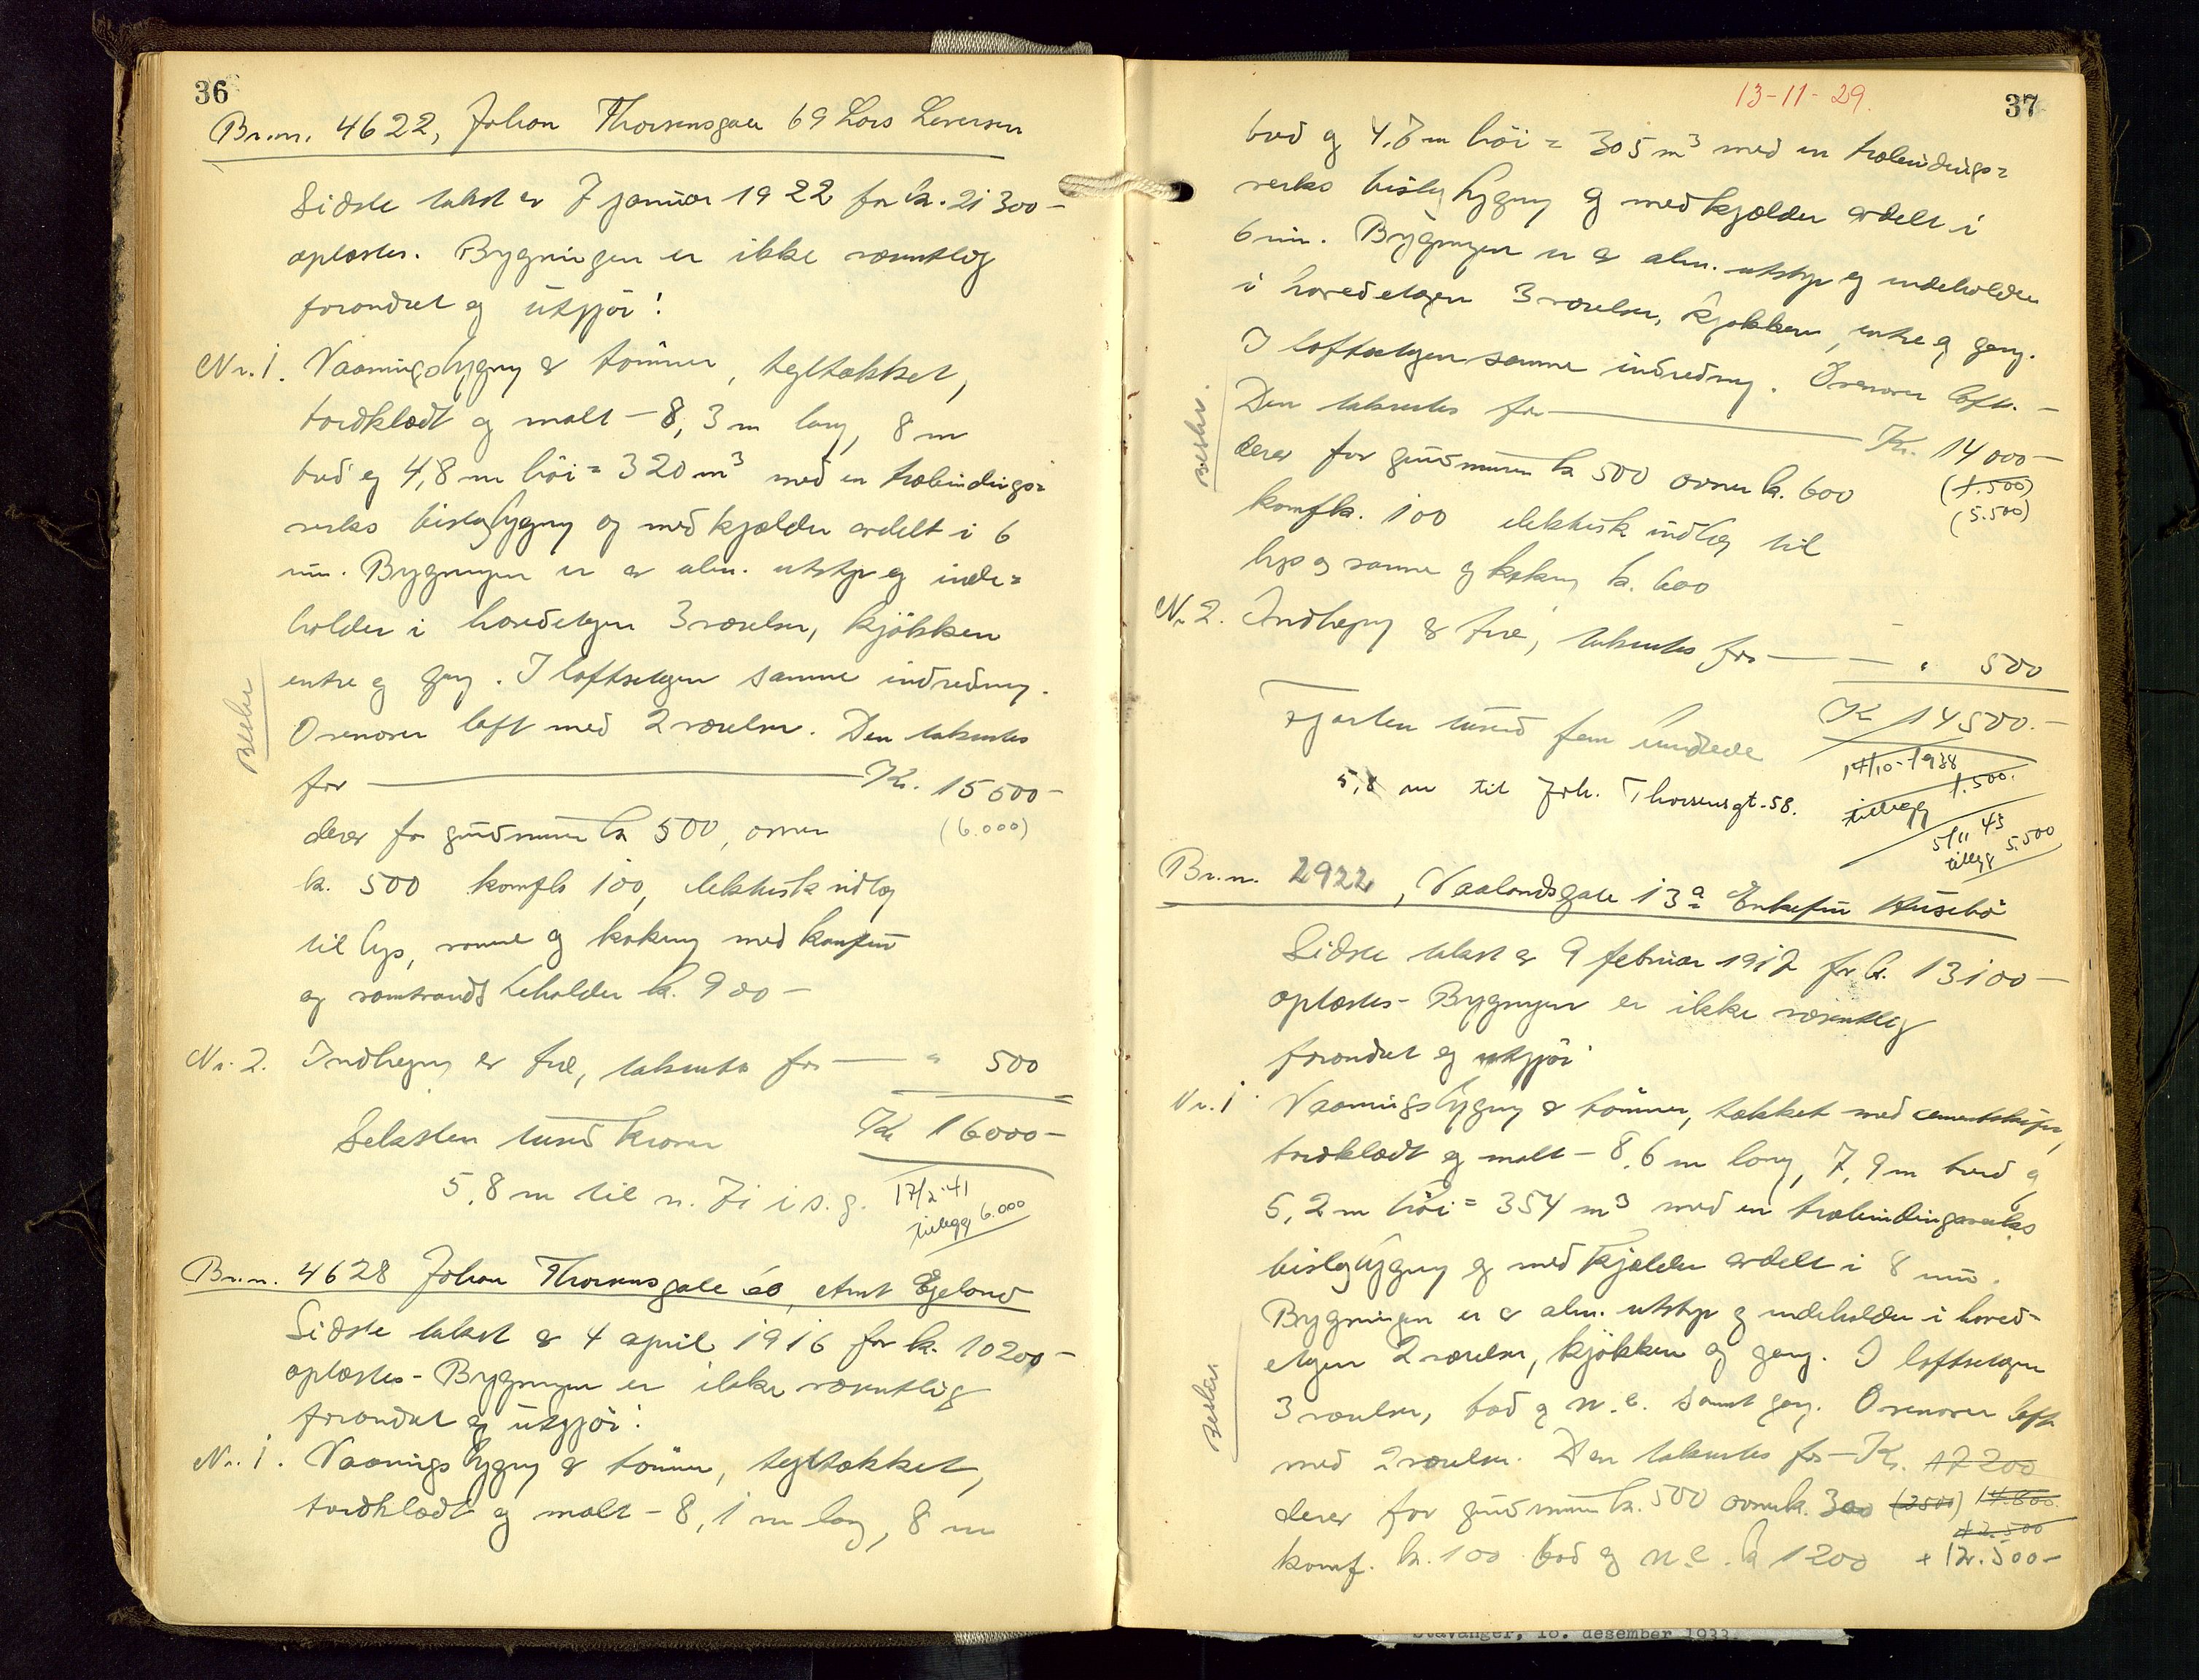 36
Br.nr. 4622, Johan Thorsensgate 69 Lars Larsen
Sidste takst er 7 januar 1922 for kr. 21300-
oplæstes. Bygningen er ikke væsentlig
forandret og utgjör:
Nr. 1. Vaaningsbygng af tömmer, tegltækket,
bordklædt og malt - 8,3 m lang, 8 m
bred og 4,8 m höi = 320 m³ med en træbindings=
verks bislagbygng og med kjælder avdelt i 6
rum. Bygningen er av alm. utstyr og inde=
holder i hovedetagen 3 værelser, kjökken
entre og gang. I loftsetagen samme indredning.
Ovenover loft med 2 værelser. Den takseres
for — Kr. 15500-
(6.000)
derav for grundmuren kr 500, ovner
kr. 500 komfk 100, elektrisk indlæg
til lys, varme og kokning med komfur
og varmtvandsbeholder kr. 900-
Nr. 2. Indhegng af træ, takseres for — " 500
Seksten tusend kroner Kr 16000-
5,8 m til n. 71 i s. g. 17/2-41
tillegg 6.000
Br.nr. 4628 Johan Thorsensgate 60, Amt Egeland
Sidste takst af 4 april 1916 for kr. 10200-
oplæstes - Bygningen er ikke væsentlig
forandret og utgjör:
Nr. 1. Vaaningsbygng af tömmer, tegltækket,
bordklædt og malt - 8,1 m lang, 8 m
13-11-29.
37
bred og 4,7 m höi = 305 m³ med en træbindings=
verks bislagbygng og med kjælder avdelt i
6 rum. Bygningen er af alm. utstyr og indeholder
i hovedetagen 3 værelser, kjökken, entre og gang.
I loftsetagen samme indredng. Ovenover loft. -
Den takseres for — Kr. 14000-
derav for grundmuren kr 500 ovner kr. 600 (1.500)
komfk. 100 elektrisk indlæg til (5.500)
lys og varme og kokng kr. 600
Nr. 2. Indhegng af træ, takseres for — " 500
Kr 14500.-
Fjorten tusend fem hundrede
14/10-1938
tillegg 1.500.
5,8 m til Joh. Thorsensgt. 58.
5/11 43
tillegg 5.500
Br.nr. 2922, Vaalandsgate 13a Enkefru Husebö
Sidste takst af 9 februar 1917 for kr. 13100-
oplæstes - Bygningen er ikke væsentlig
forandret og utgjör
Nr. 1 Vaaningsbygng af tömmer, tækket med cementskifer,
bordklædt og malt - 8,6 m lang, 7,9 m bred og
5,2 m höi = 354 m³ med en træbindingsverks
bislagbygng og med kjælder avdelt i 8 rum.
Bygningen er af alm. utstyr og indeholder i hoved-
etagen 2 værelser, kjökken og gang. I loftsetagen
3 værelser, bad og w.c. samt gang. Ovenover loft
med 2 værelser. Den takseres for - Kr. 17200
derav for grundmuren kr. 500 ovner kr. 300 (2500) 14.800
12.500
komf. kr. 100 bad og w.c. kr 1200 + 12.500-
Stavanger, 18. desember 1933.